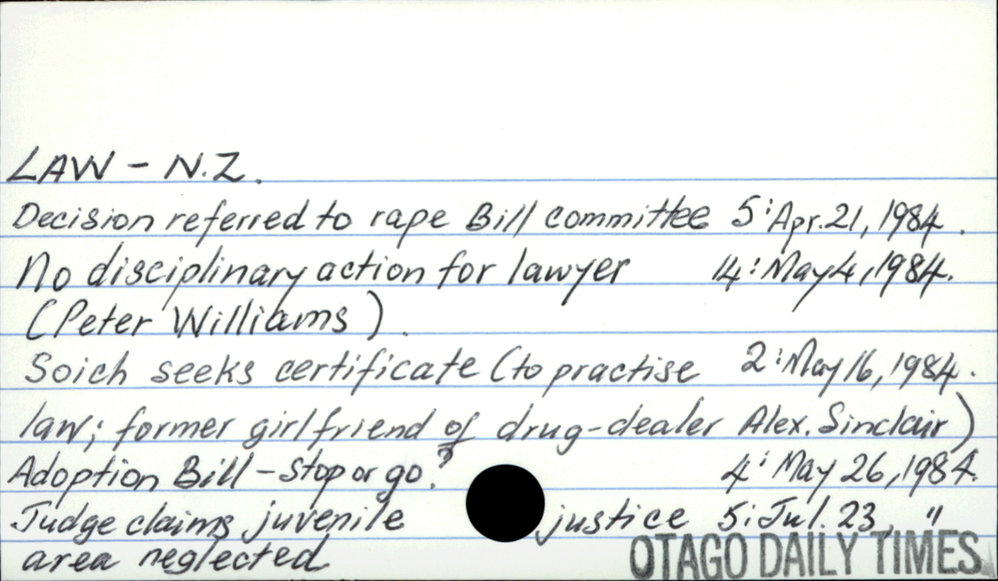 LAW - N.Z.
Decision referred to rape Bill committee 5: Apr. 21, 1984.
No disciplinary action for lawyer 14: May 4, 1984.
(Peter Williams).
Soich seeks certificate (to practise 2: May 16, 1984.
law; former girlfriend of drug-dealer Alex. Sinclair)
Adoption Bill - Stop or go? 4: May 26, 1984.
Judge claims juvenile justice 5: Jul. 23, "
area neglected
OTAGO DAILY TIMES